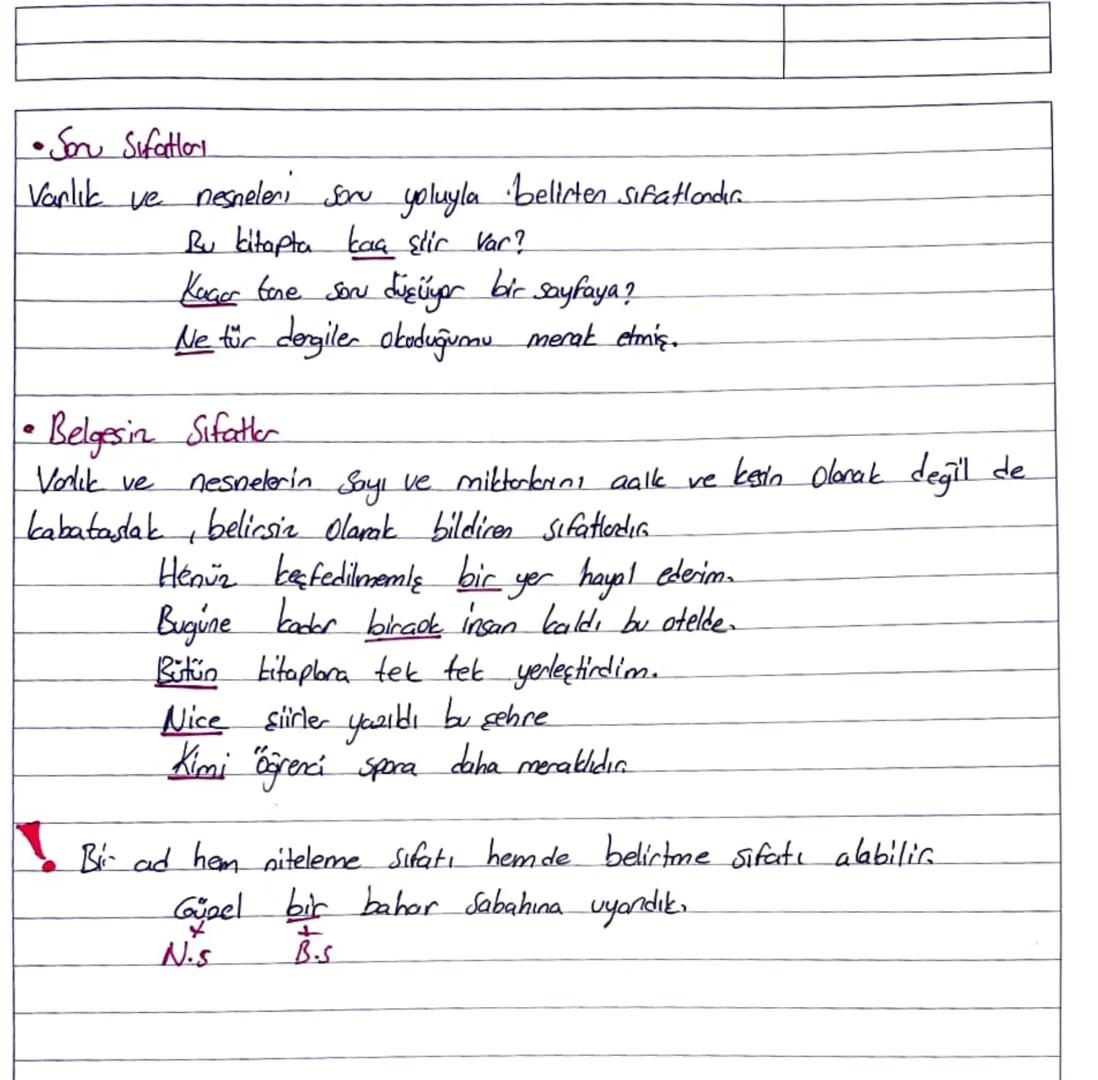 • Soru Sıfatları
Varlık ve nesneleri soru yoluyla belirten sıfatlardır.
Bu kitapta kaç şiir var?
Kaçar tane soru düşüyor bir sayfaya?
Ne tür dergiler okuduğumu merak etmiş.
• Belgesiz Sıfatlar
Varlık ve nesnelerin sayı ve miktarlarını açık ve kesin olarak değil de
kabataslak, belirsiz olarak bildiren sıfatlardır.
Henüz keşfedilmemiş bir yer hayal ederim.
Bugüne kadar birçok insan kaldı bu otelde.
Bütün kitaplara tek tek yerleştirdim.
Nice şiirler yazıldı bu şehre
Kimi öğrenci spora daha meraklıdır.
! Bir ad hem niteleme sıfatı hemde belirtme sıfatı alabilir.
Güzel bir bahar sabahına uyandık.
N.s B.s